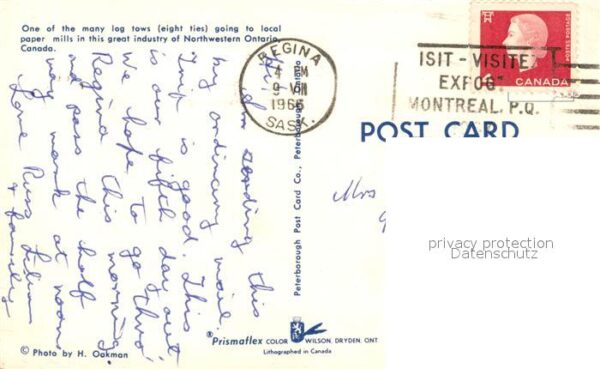 One of the many log tows (eight ties) going to local
paper mills in this great industry of Northwestern Ontario,
Canada.
REGINA
4 PM
9 VIII
1966
SASK.
VISIT - VISITEZ
EXPO67
MONTREAL, P.Q.
POSTES POSTAGE
CANADA
POST CARD
Hi, I'm sending this
by ordinary mail.
Trip is good. This
is our fifth day out
We hope to go thro'
Regina this morning
and pass the half
way mark at noon
Love Russ Lilian
& family
Mrs
Peterborough Post Card Co., Peterborough, Ontario
privacy protection
Datenschutz
Prismaflex COLOR WILSON, DRYDEN, ONT
Lithographed in Canada
© Photo by H. Oakman